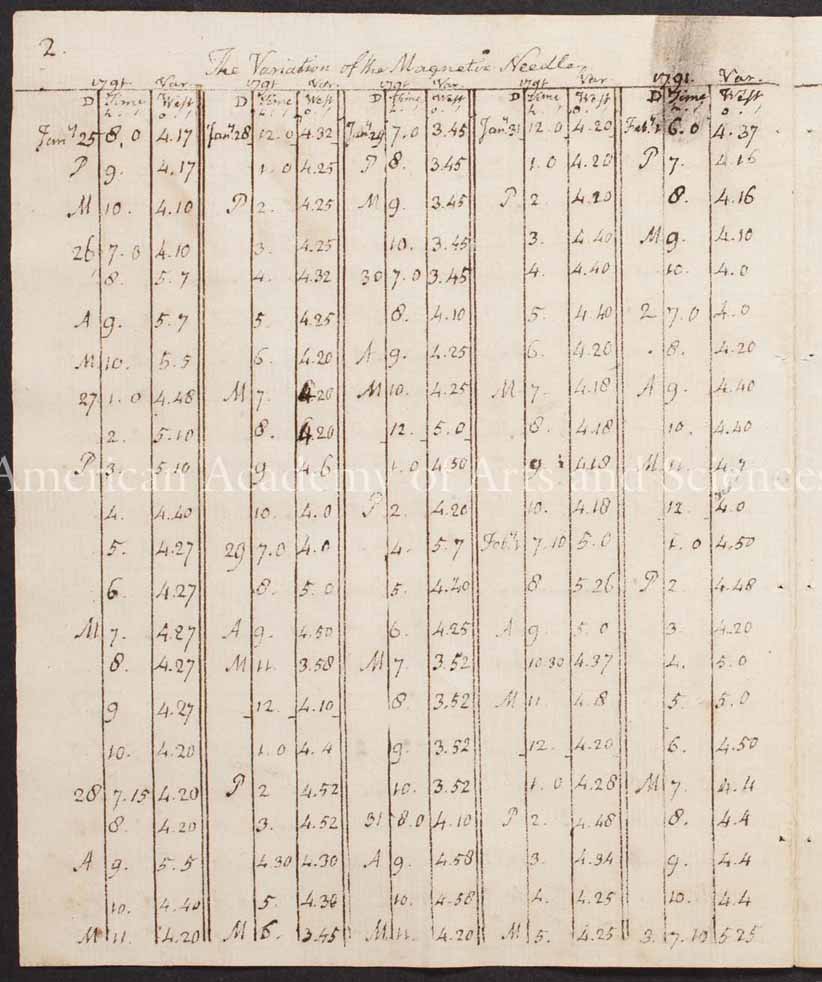 2.
The Variation of the Magnetic Needle.
1791 Var. 1791 Var. 1791 Var. 1791 Var. 1791. Var.
D Time West D Time West D Time West D Time West D Time West
h. ' o ' h. ' o ' h. ' o ' h. ' o ' h. ' o '
Jany 25 8.0 4.17 Jany 28 12.0 4.32 Jany 29 7.0 3.45 Jany 31 12.0 4.20 Feby 1 6.0 4.37
P 9. 4.17 1.0 4.25 P 8. 3.45 1.0 4.20 P 7. 4.16
M 10. 4.10 P 2. 4.25 M 9. 3.45 P 2 4.20 8. 4.16
26 7.0 4.10 3. 4.25 10. 3.45 3. 4.40 M 9. 4.10
8. 5.7 4. 4.32 30 7.0 3.45 4. 4.40 10. 4.0
A 9. 5.7 5. 4.25 8. 4.10 5. 4.40 2 7.0 4.0
M 10. 5.5 6. 4.20 A 9. 4.25 6. 4.20 8. 4.20
27 1.0 4.48 M 7. 4.20 M 10. 4.25 M 7. 4.18 A 9. 4.40
2. 5.10 8. 4.20 12. 5.0 8. 4.18 10. 4.40
P 3. 5.10 9 4.6 1.0 4.50 9 4.18 M 11. 4.7
4. 4.40 10. 4.0 P 2. 4.20 10. 4.18 12 4.0
5. 4.27 29 7.0 4.0 4. 5.7 Feby 1 7.10 5.0 1.0 4.50
6. 4.27 8. 5.0 5. 4.40 8 5.26 P 2 4.48
M 7. 4.27 A 9. 4.50 6. 4.25 A 9. 5.0 3. 4.20
8. 4.27 M 11. 3.58 M 7 3.52 10.30 4.37 4. 5.0
9 4.27 12. 4.10 8. 3.52 M 11. 4.8 5. 5.0
10. 4.20 1.0 4.4 9. 3.52 12. 4.20 6. 4.50
28 7.15 4.20 P 2 4.52 10. 3.52 1.0 4.28 M 7. 4.4
8. 4.20 3. 4.52 31 8.0 4.10 P 2. 4.48 8. 4.4
A 9. 5.5 4.30 4.30 A 9. 4.58 3. 4.34 9. 4.4
10. 4.40 5. 4.36 10. 4.58 4. 4.25 10. 4.4
M 11. 4.20 M 6. 3.45 M 11. 4.20 M 5. 4.25 3. 7.10 5.25
American Academy of Arts and Sciences